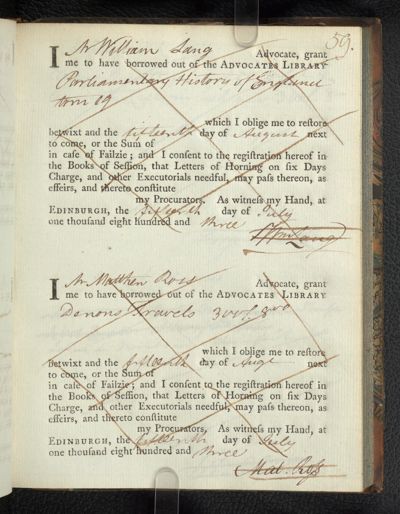 59.
I Mr William Lang Advocate, grant
me to have borrowed out of the ADVOCATES LIBRARY
Parliamentary History of England
tom 19
which I oblige me to reſtore
betwixt and the fifteenth day of August next
to come, or the Sum of
in caſe of Failzie; and I conſent to the regiſtration hereof in
the Books of Seſſion, that Letters of Horning on ſix Days
Charge, and other Executorials needful, may paſs thereon, as
effeirs, and thereto conſtitute
my Procurators. As witneſs my Hand, at
EDINBURGH, the fifteenth day of July
one thouſand eight hundred and three
Wm Lang
I Mr Matthew Ross Advocate, grant
me to have borrowed out of the ADVOCATES LIBRARY
Denons Travels
which I oblige me to reſtore
betwixt and the fifteenth day of Augt next
to come, or the Sum of
in caſe of Failzie; and I conſent to the regiſtration hereof in
the Books of Seſſion, that Letters of Horning on ſix Days
Charge, and other Executorials needful, may paſs thereon, as
effeirs, and thereto conſtitute
my Procurators. As witneſs my Hand, at
EDINBURGH, the fifteenth day of July
one thouſand eight hundred and three
Mat. Roſs